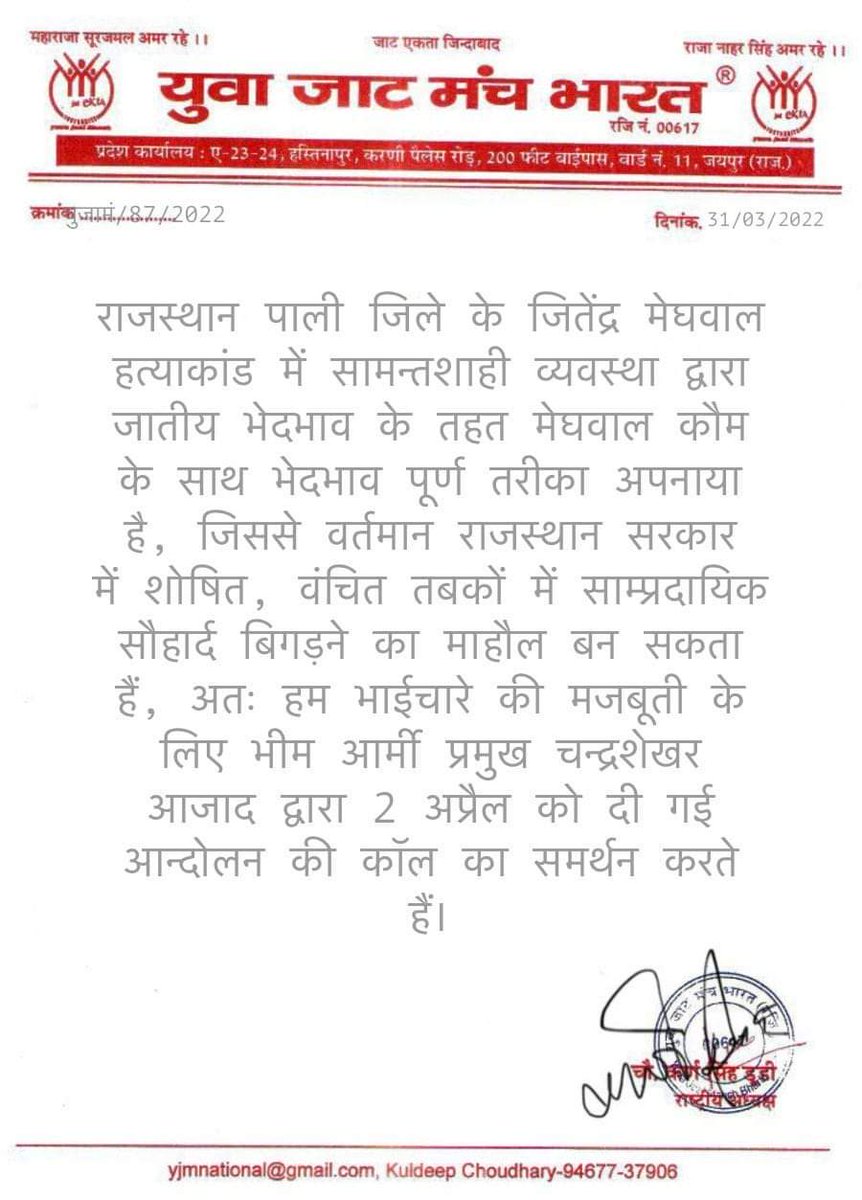 महाराजा सूरजमल अमर रहे ।।
जाट एकता जिन्दाबाद
राजा नाहर सिंह अमर रहे ।।
युवा जाट मंच भारत ®
रजि नं. 00617
प्रदेश कार्यालय : ए-23-24, हस्तिनापुर, करणी पैलेस रोड़, 200 फीट बाईपास, वार्ड नं. 11, जयपुर (राज.)
क्रमांक युजामं/87/2022
दिनांक. 31/03/2022
राजस्थान पाली जिले के जितेंद्र मेघवाल
हत्याकांड में सामन्तशाही व्यवस्था द्वारा
जातीय भेदभाव के तहत मेघवाल कौम
के साथ भेदभाव पूर्ण तरीका अपनाया
है, जिससे वर्तमान राजस्थान सरकार
में शोषित, वंचित तबकों में साम्प्रदायिक
सौहार्द बिगड़ने का माहौल बन सकता
हैं, अतः हम भाईचारे की मजबूती के
लिए भीम आर्मी प्रमुख चन्द्रशेखर
आजाद द्वारा 2 अप्रैल को दी गई
आन्दोलन की कॉल का समर्थन करते
हैं।
चौ. कर्ण सिंह डूडी
राष्ट्रीय अध्यक्ष
yjmnational@gmail.com, Kuldeep Choudhary-94677-37906